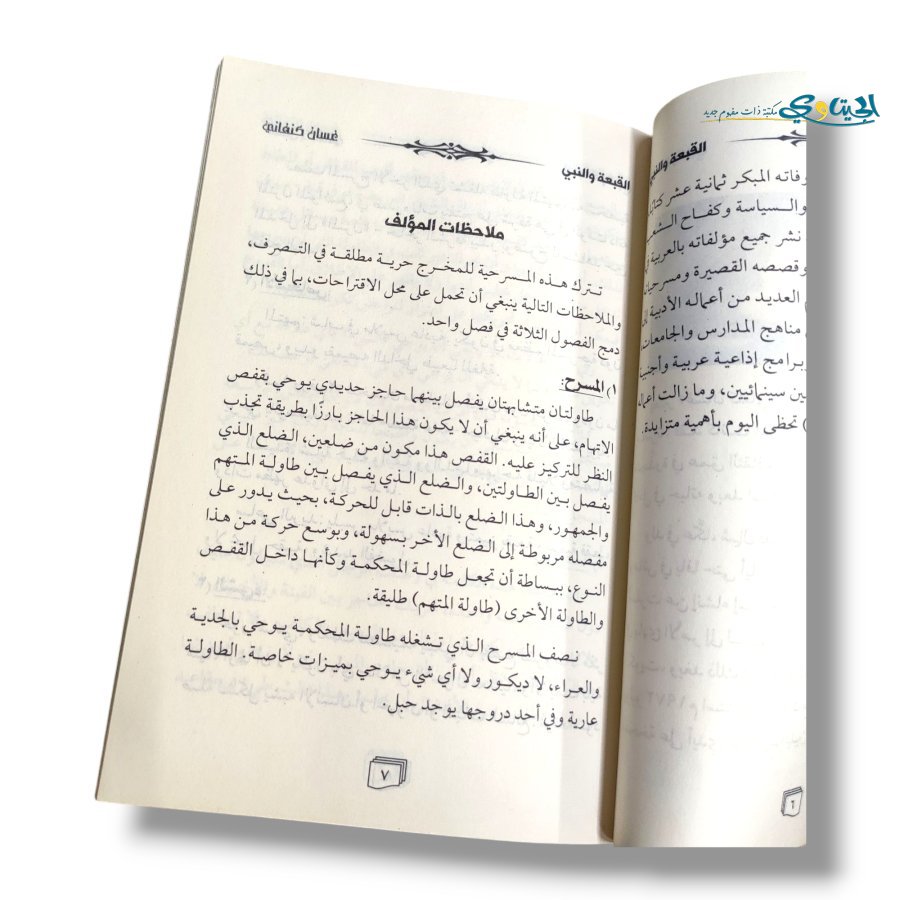 الجيتاوي مكتبة ذات مفهوم جديد
القبعة والنبي
وفاته المبكر ثمانية عشر
والسياسة وكفاح
نشر جميع مؤلفاته بالعربية
وقصصه القصيرة
العديد من أعماله الأدبية
مناهج المدارس والجامعات،
وبرامج إذاعية عربية
سينمائيين، وما زالت
تحظى اليوم بأهمية متزايدة.
٦
القبعة والنبي غسان كنفاني
ملاحظات المؤلف
تترك هذه المسرحية للمخرج حرية مطلقة في التصرف،
والملاحظات التالية ينبغي أن تحمل على محل الاقتراحات، بما في ذلك
دمج الفصول الثلاثة في فصل واحد.
١) المسرح:
طاولتان متشابهتان يفصل بينهما حاجز حديدي يوحي بقفص
الاتهام، على أنه ينبغي أن لا يكون هذا الحاجز بارزًا بطريقة تجذب
النظر للتركيز عليه. القفص هذا مكون من ضلعين، الضلع الذي
يفصل بين الطاولتين، والضلع الذي يفصل بين طاولة المتهم
والجمهور، وهذا الضلع بالذات قابل للحركة، بحيث يدور على
مفصله مربوطة إلى الضلع الأخر بسهولة، وبوسع حركة من هذا
النوع، ببساطة أن تجعل طاولة المحكمة وكأنها داخل القفص
والطاولة الأخرى (طاولة المتهم) طليقة.
نصف المسرح الذي تشغله طاولة المحكمة يوحي بالجدية
والعراء، لا ديكور ولا أي شيء يوحي بميزات خاصة. الطاولة
عارية وفي أحد دروجها يوجد حبل.
٧